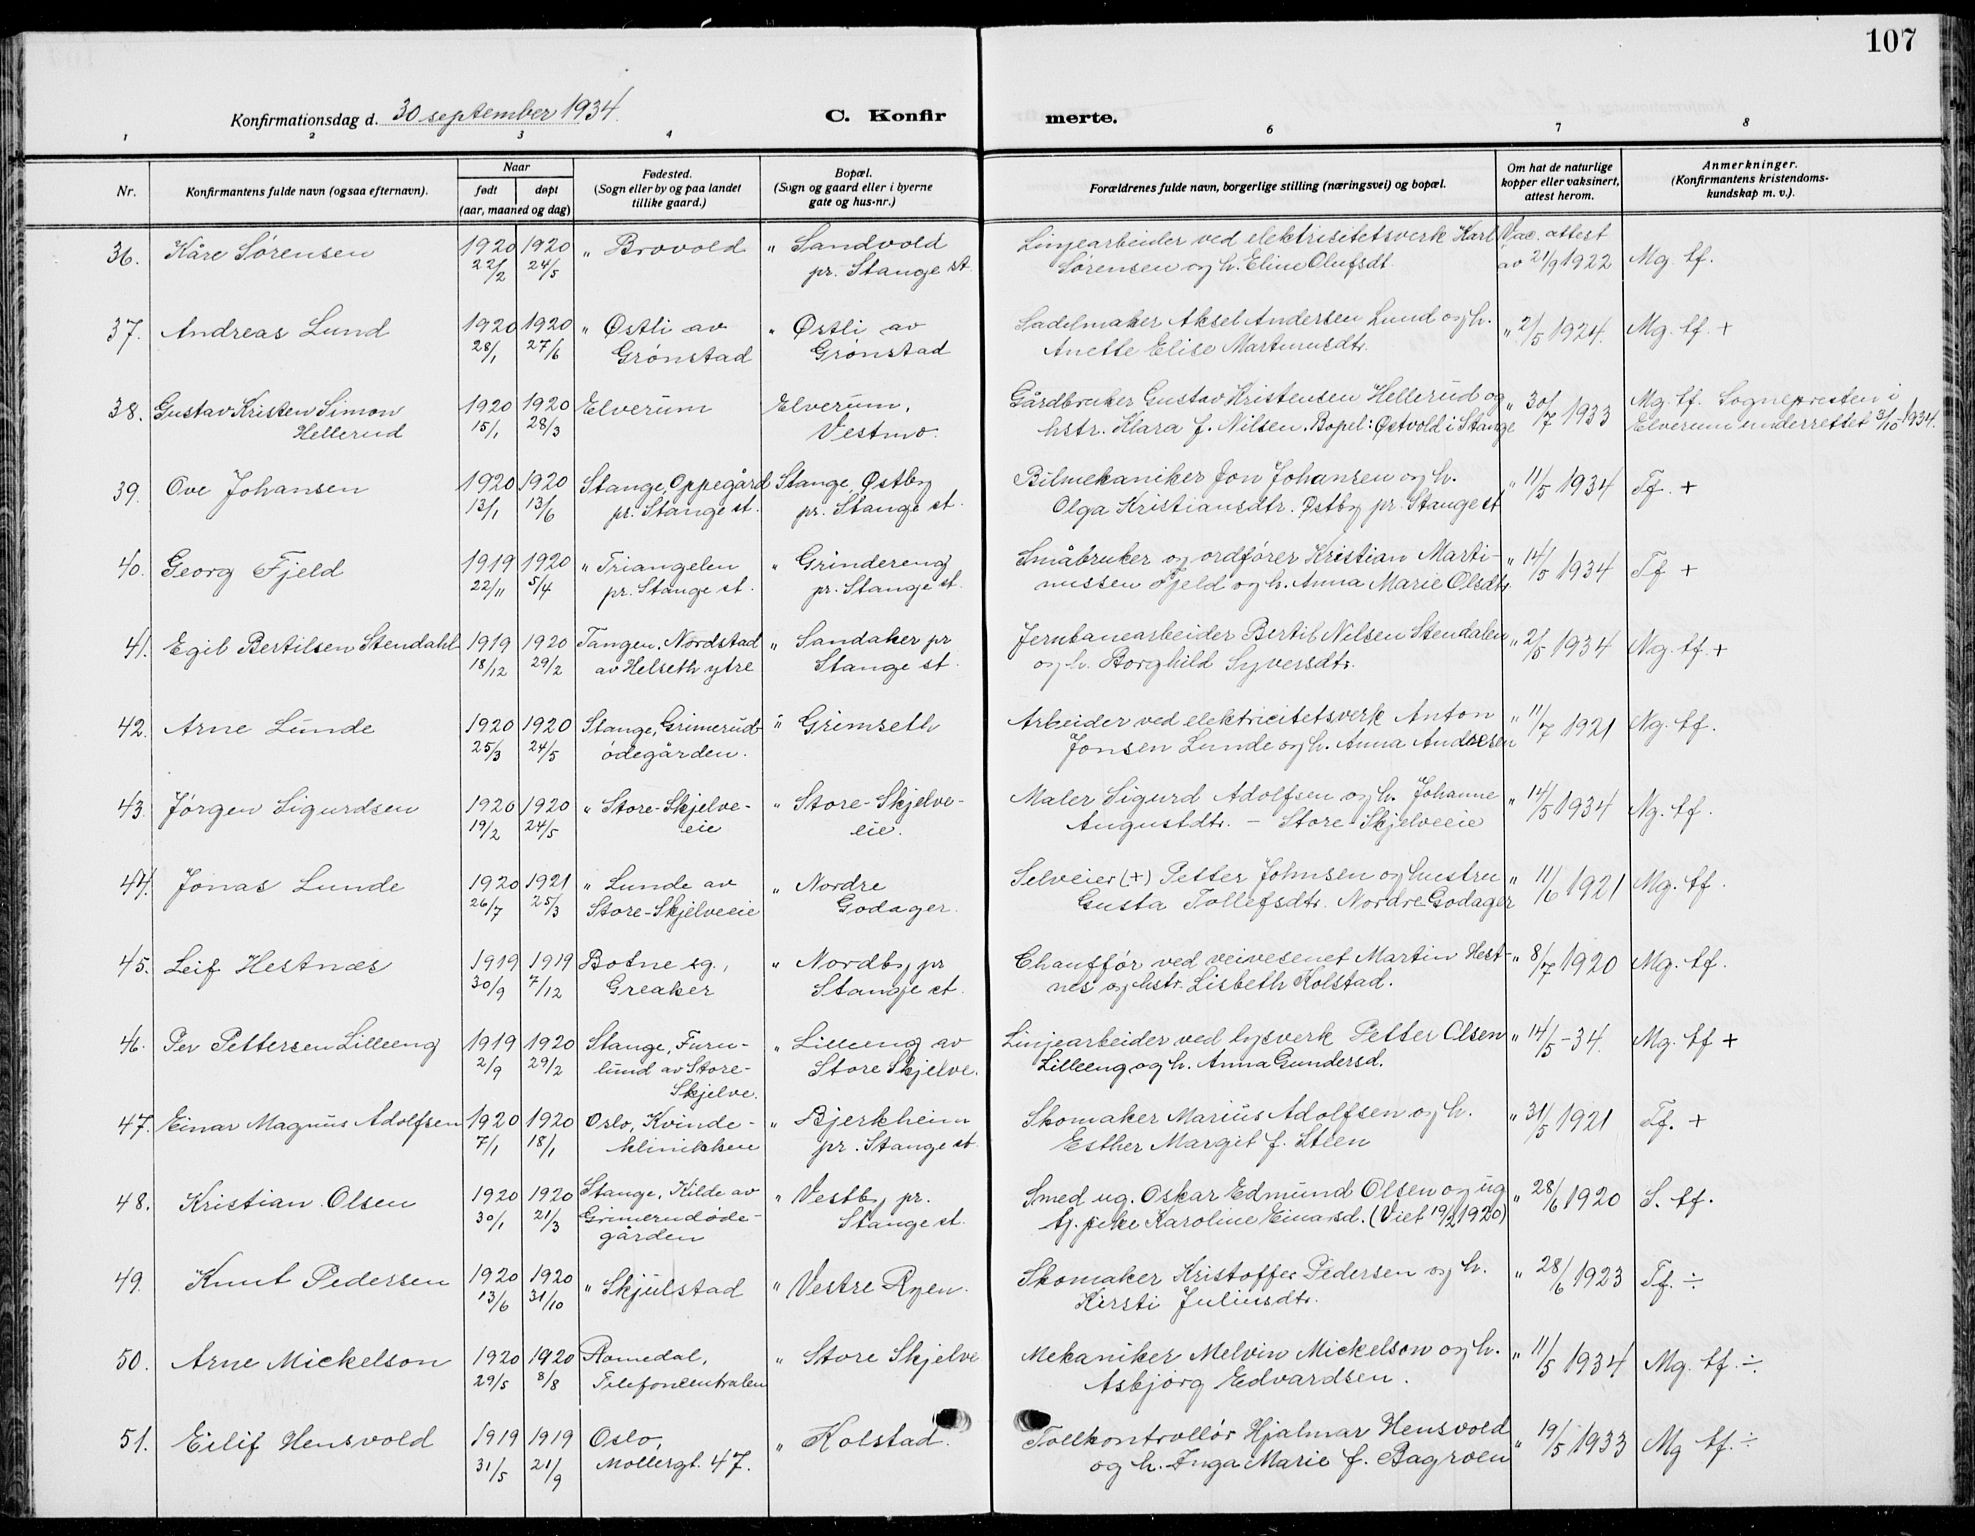 107
Konfirmationsdag d. 30 september 1934.
C. Konfirmerte.
1 2 3 4 6 7 8
Nr. | Konfirmantens fulde navn (ogsaa efternavn). | Naar født døpt (aar, maaned og dag) | Fødested. (Sogn eller by og paa landet tillike gaard.) | Bopæl. (Sogn og gaard eller i byerne gate og hus-nr.) | Forældrenes fulde navn, borgerlige stilling (næringsvei) og bopæl. | Om hat de naturlige kopper eller vaksinert, attest herom. | Anmerkninger. (Konfirmantens kristendomskundskap m. v.).
36. Kåre Sørensen 1920 1920 " Brovold " Sandvold Linjearbeider ved elektrisitetsverk Karl Vac. attest
22/2 24/5 pr. Stange st. Sørensen og h. Eline Olufsdt. av 21/9 1922 Mg. tf.
37. Andreas Lund 1920 1920 " Østli av " Østli av Sadelmaker Aksel Andersen Lund og h. " 2/5 1924. Mg. tf +
28/1 27/6 Grønstad Grønstad Anette Elise Martinusdtr.
38. Gustav Kristen Simon 1920 1920 Elverum Elverum, Gårdbruker Gustav Kristensen Hellerud og " 30/7 1933 Mg. tf. Sognepresten i
Hellerud 15/1 28/3 Vestmo. hstr. Klara f. Nilsen. Bopel: Østvold i Stange Elverum underrettet 3/10-1934.
39. Ove Johansen 1920 1920 Stange, Oppegård Stange, Østby Bilmekaniker Jon Johansen og h. " 11/5 1934 Tf. +
13/1 13/6 pr. Stange st. pr. Stange st. Olga Kristiansdtr. Østby pr. Stange st
40. Georg Fjeld 1919 1920 " Triangelen " Grindereng Småbruker og ordfører Kristian Marti- " 14/5 1934 Tf +
22/11 5/4 pr. Stange st. pr. Stange st. nussen Fjeld og h. Anna Marie Olsdtr.
41. Egil Bertilsen Stendahl 1919 1920 Tangen, Nordstad " Sandaker pr Jernbanearbeider Bertil Nilsen Stendalen " 2/5 1934 Ng. tf. +
18/12 29/2 av Helseth ytre Stange st. og h. Borghild Syversdtr.
42. Arne Lunde 1920 1920 Stange, Grimerud- " Grimseth Arbeider ved elektricitetsverk Anton " 11/7 1921 Ng. tf.
25/3 24/5 ødegården. Jonsen Lunde og h. Anna Andresen
43. Jørgen Sigurdsen 1920 1920 " Store-Skjelve- " Store-Skjelve- Maler Sigurd Adolfsen og h. Johanne " 14/5 1934 Ng. tf.
19/2 24/5 eie eie. Augustdtr. - Store-Skjelveeie
44. Jonas Lunde 1920 1921 " Lunde av " Nordre Selveier (+) Petter Johnsen og hustru " 11/6 1921 Mg. tf.
26/7 25/3 Store-Skjelveeie Godager. Gusta Tollefsdtr. Nordre Godager
45. Leif Hestnæs 1919 1919 Botne sg., " Nordby pr Chauffør ved veivesenet Martin Hest- " 8/7 1920 Mg. tf.
30/9 7/12 Greaker Stange st. nes og hstr. Lisbeth Kolstad.
46. Per Pettersen Lilleeng 1919 1920 Stange, Furu- " Lilleeng av Linjearbeider ved lysverk Petter Olsen " 14/5-34. Mg. tf +
2/9 29/2 lund av Store- Store Skjelve. Lilleeng og h. Anna Gundersd.
Skjelve.
47. Einar Magnus Adolfsen 1920 1920 Oslo, Kvinde- " Bjerkheim Skomaker Marius Adolfsen og h. " 31/5 1921 Tf. +
7/1 18/1 klinikken pr. Stange st. Esther Margit f. Steen
48. Kristian Olsen 1920 1920 Stange, Kilde av " Vestby pr. Smed ug. Oskar Edmund Olsen og ug " 28/6 1920 S. tf.
30/1 21/3 Grimerudøde- Stange st. tj. pike Karoline Einarsd. (Viet 19/2 1920)
gården
49. Knut Pedersen 1920 1920 " Skjulstad " Vestre Ryen. Skomaker Kristoffer Pedersen og h. " 28/6 1923 Tf. ÷
13/6 31/10 Kirsti Juliusdtr.
50. Arne Mickelson 1920 1920 Romedal, " Store Skjelve Mekaniker Melvin Mickelson og h. " 11/5 1934 Mg. tf. ÷
29/5 8/8 Telefoncentralen Asbjørg Edvardsen.
51. Eilif Hensvold 1919 1919 Oslo, " Kolstad. Tollkontrollør Hjalmar Hensvold " 19/5 1933 Mg tf. ÷
31/5 21/9 Møllergt. 47. og h. Inga Marie f. Bagroen